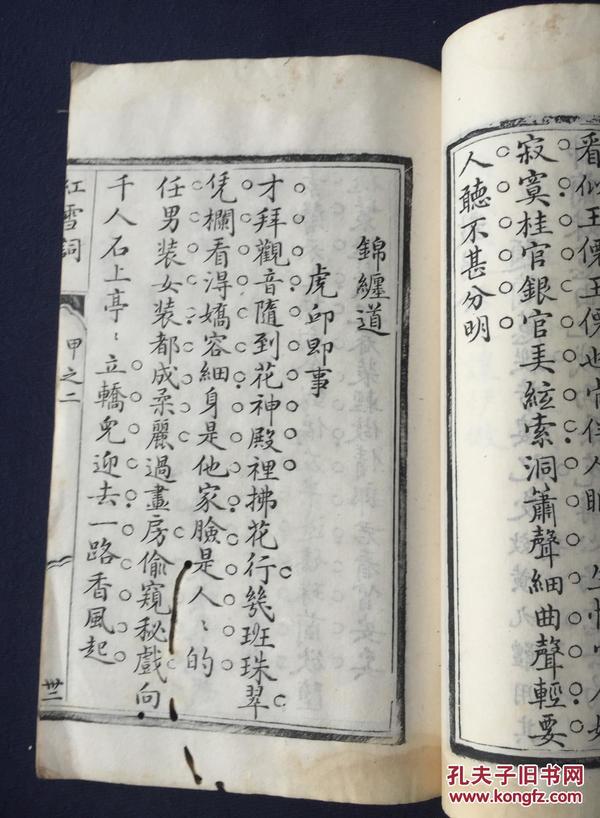 寂寞桂官銀官美絃索洞簫聲細曲聲輕要
人聽不甚分明
錦纏道
虎邱即事
才拜觀音隨到花神殿裡拂花行幾班珠翠
凭欄看淂嬌容細身是他家臉是人〻的
任男装女装都成柔麗過畫房偷窺秘戲向
千人石上亭〻立轎皃迎去一路香風起
紅雪詞
甲之二
卅二
孔夫子旧书网
KONGFZ.COM